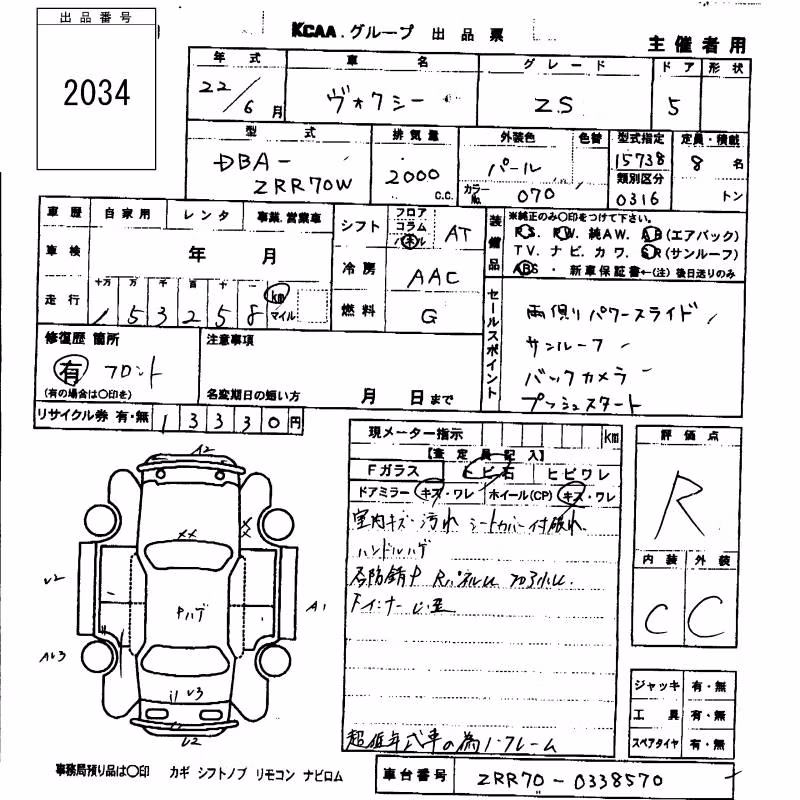 出品番号
2034
KCAA.グループ 出品票
主催者用
年式 車名 グレード ドア 形状
22/6月 ヴォクシー ZS 5
型式 排気量 外装色 色替 型式指定 定員・積載
DBA-ZRR70W 2000 c.c. パール 15738 8名
カラーNo. 070 類別区分 0316 トン
車歴 自家用 レンタ 事業.営業車
シフト フロア コラム パネル AT
車検 年 月
冷房 AAC
走行 十万 万 千 百 十 一 km マイル
1 5 3 2 5 8
燃料 G
装備品
※純正のみ○印をつけて下さい。
P.S. P.W. 純AW. AB(エアバック)
TV. ナビ. カワ. SR(サンルーフ)
ABS ・ 新車保証書←(注)後日送りのみ
セールスポイント
両側パワースライド
サンルーフ
バックカメラ
プッシュスタート
修復歴 箇所
有 フロント
(有の場合は○印を)
注意事項
名変期日の短い方 月 日まで
リサイクル券 有・無 13330円
現メーター指示 km
【査定員記入】
Fガラス トビ石 ヒビワレ
ドアミラー キズ・ワレ ホイール(CP) キズ・ワレ
室内キズ・汚れ シートカバー付
ハンドルハゲ
超低年式車の為ノークレーム
評価点
R
内装 外装
C C
ジャッキ 有・無
工具 有・無
スペアタイヤ 有・無
A2
XX
XX
V2
Pハゲ
A1
AV3
V3
V2
事務局預り品は○印 カギ シフトノブ リモコン ナビロム
車台番号 ZRR70-0338570